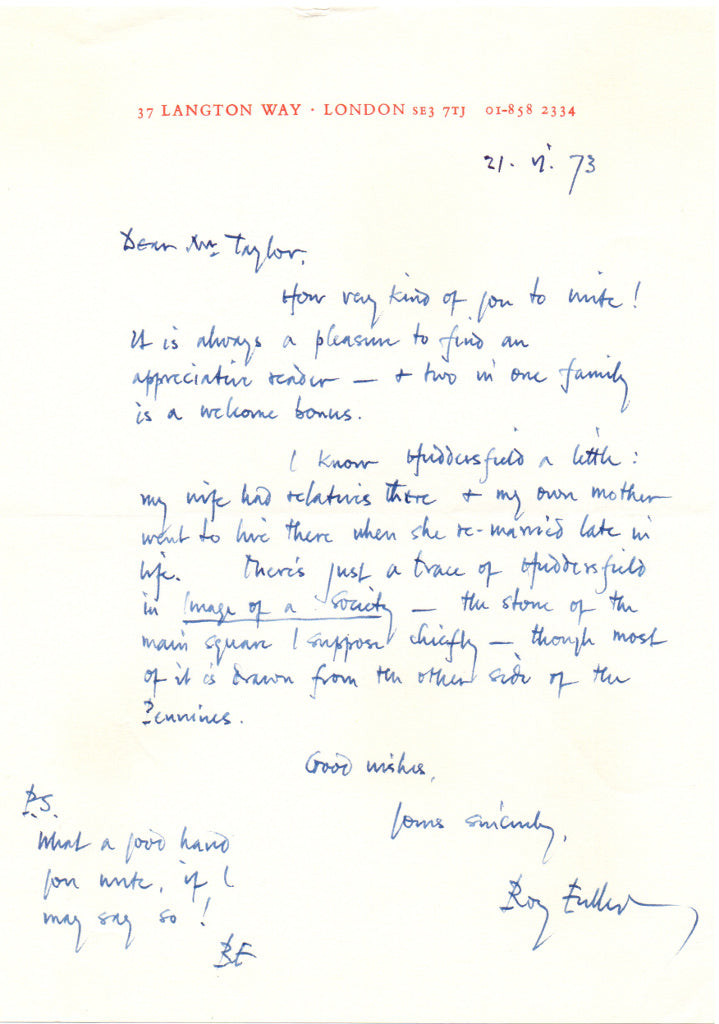 37 LANGTON WAY · LONDON SE3 7TJ 01-858 2334
21. vi. 73
Dear Mr Taylor,
How very kind of you to write!
It is always a pleasure to find an
appreciative reader — & two in one family
is a welcome bonus.
I know Huddersfield a little:
my wife had relatives there & my own mother
went to live there when she re-married late in
life. There's just a trace of Huddersfield
in Image of a Society — the stone of the
main square I suppose chiefly — though most
of it is drawn from the other side of the
Pennines.
Good wishes,
Yours sincerely,
Roy Fuller
P.S.
What a good hand
you write, if I
may say so!
RF